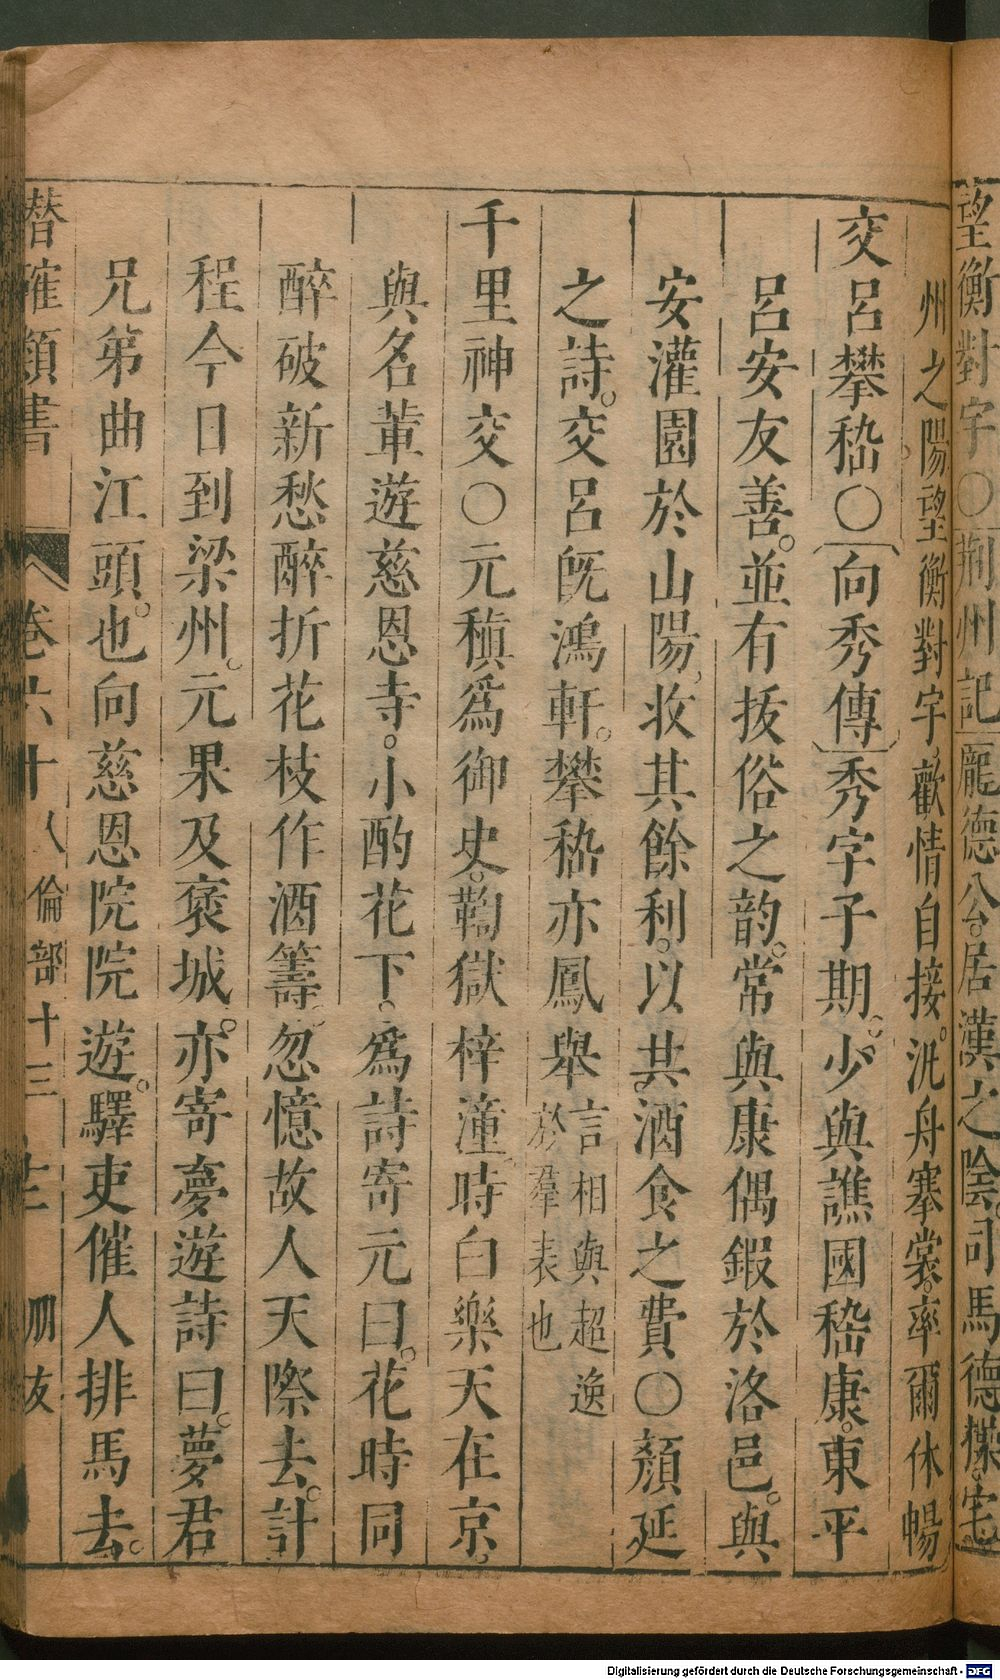 望衡對宇〇荆州記龐德公居漢之陰司馬德操宅
州之陽望衡對宇歡情自接泛舟褰裳率爾休暢
交呂攀嵇〇向秀傳秀字子期少與譙國嵇康東平
呂安友善並有拔俗之韵常與康偶鍜於洛邑與
安灌園於山陽收其餘利以共酒食之費〇顏延
之詩交呂旣鴻軒攀嵇亦鳳舉言相與超逸
於羣表也
千里神交〇元稹爲御史鞫獄梓潼時白樂天在京
與名軰遊慈恩寺小酌花下爲詩寄元曰花時同
醉破新愁醉折花枝作酒籌忽憶故人天際去計
程今日到梁州元果及褒城亦寄夢遊詩曰夢君
兄弟曲江頭也向慈恩院院遊驛吏催人排馬去
潛確類書 卷六十 人倫部十三 朋友
Digitalisierung gefördert durch die Deutsche Forschungsgemeinschaft - DFG